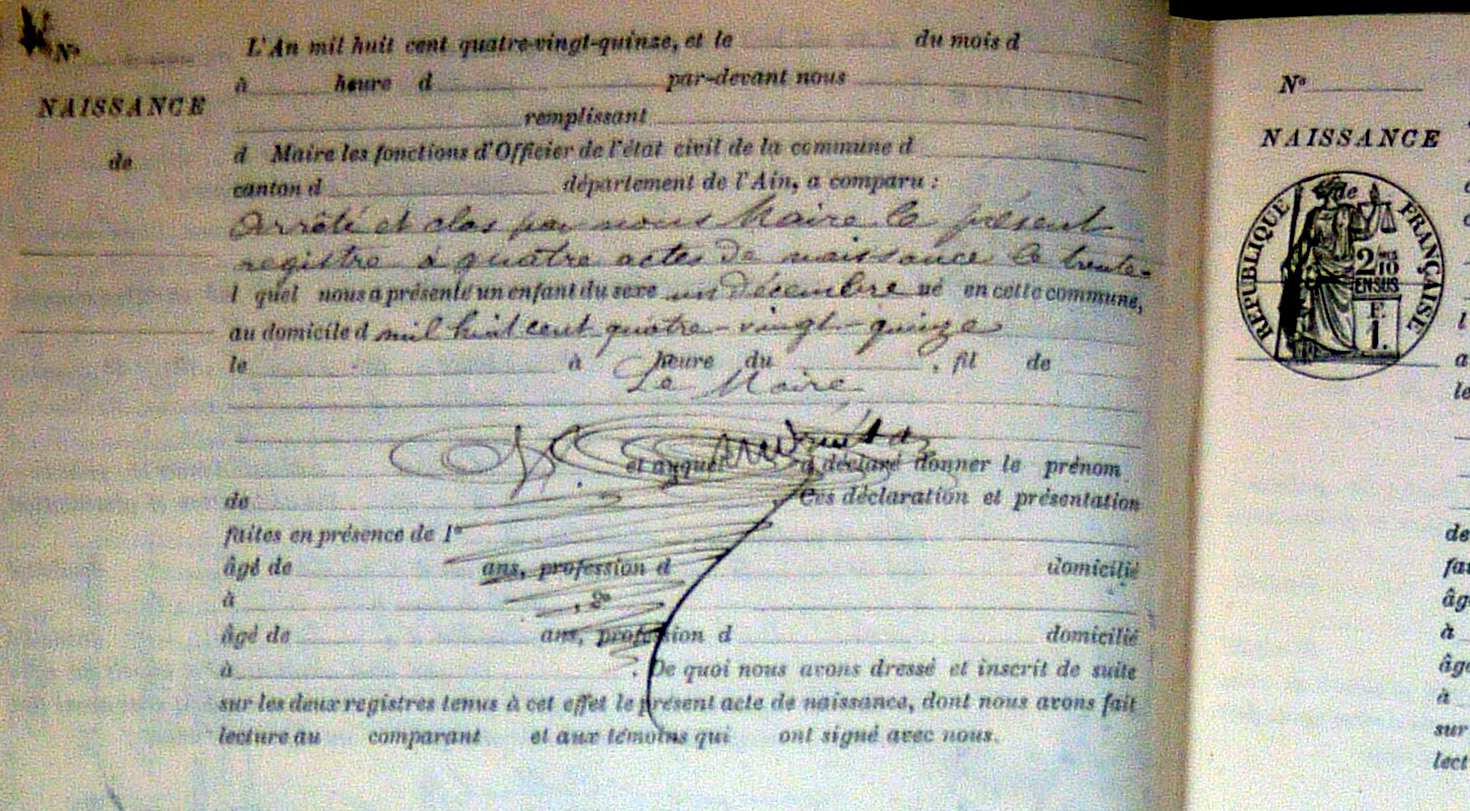 N°
L'An mil huit cent quatre-vingt-quinze, et le du mois d
à heure d par-devant nous
NAISSANCE
remplissant
de
d Maire les fonctions d'Officier de l'état civil de la commune d
canton d département de l'Ain, a comparu :
Arrêté et clos par nous Maire le présent
registre à quatre actes de naissance le trente-
l quel nous a présenté un enfant du sexe un Décembre né en cette commune,
au domicile d mil huit cent quatre-vingt-quinze
le à heure du , fil de
Le Maire
et auquel a déclaré donner le prénom
de Ces déclaration et présentation
faites en présence de 1°
âgé de ans, profession d domicilié
à , 2°
âgé de ans, profession d domicilié
à . De quoi nous avons dressé et inscrit de suite
sur les deux registres tenus à cet effet le présent acte de naissance, dont nous avons fait
lecture au comparant et aux témoins qui ont signé avec nous.
N°
NAISSANCE
de
RÉPUBLIQUE FRANÇAISE
2/10
EN SUS
F.
1.
l
a
le
de
fai
âg
à
âg
à
sur
lect